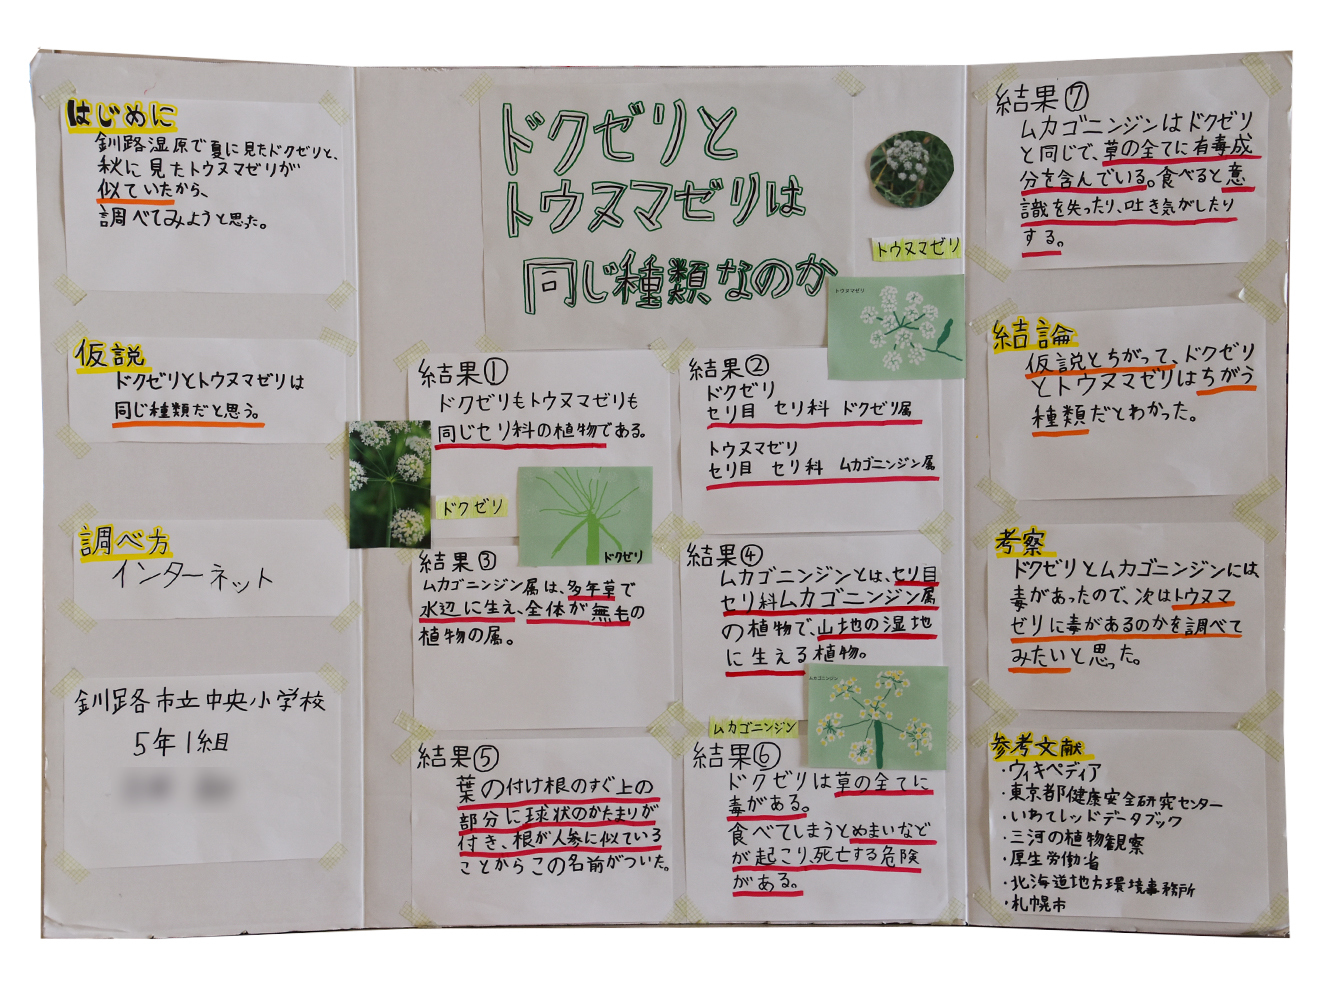 はじめに
釧路湿原で夏に見たドクゼリと、
秋に見たトウヌマゼリが
似ていたから、
調べてみようと思った。
仮説
ドクゼリとトウヌマゼリは
同じ種類だと思う。
調べ方
インターネット
釧路市立中央小学校
5年1組
ドクゼリと
トウヌマゼリは
同じ種類なのか
トウヌマゼリ
トウヌマゼリ
結果①
ドクゼリもトウヌマゼリも
同じセリ科の植物である。
ドクゼリ
ドクゼリ
結果②
ドクゼリ
セリ目 セリ科 ドクゼリ属
トウヌマゼリ
セリ目 セリ科 ムカゴニンジン属
結果③
ムカゴニンジン属は、多年草で
水辺に生え、全体が無毛の
植物の属。
結果④
ムカゴニンジンとは、セリ目
セリ科ムカゴニンジン属
の植物で、山地の湿地
に生える植物。
ムカゴニンジン
ムカゴニンジン
結果⑤
葉の付け根のすぐ上の
部分に球状のかたまりが
付き、根が人参に似ている
ことからこの名前がついた。
結果⑥
ドクゼリは草の全てに
毒がある。
食べてしまうとめまいなど
が起こり、死亡する危険
がある。
結果⑦
ムカゴニンジンはドクゼリ
と同じで、草の全てに有毒成
分を含んでいる。食べると意
識を失ったり、吐き気がしたり
する。
結論
仮説とちがって、ドクゼリ
とトウヌマゼリはちがう
種類だとわかった。
考察
ドクゼリとムカゴニンジンには
毒があったので、次はトウヌマ
ゼリに毒があるのかを調べて
みたいと思った。
参考文献
・ウィキペディア
・東京都健康安全研究センター
・いわてレッドデータブック
・三河の植物観察
・厚生労働省
・北海道地方環境事務所
・札幌市